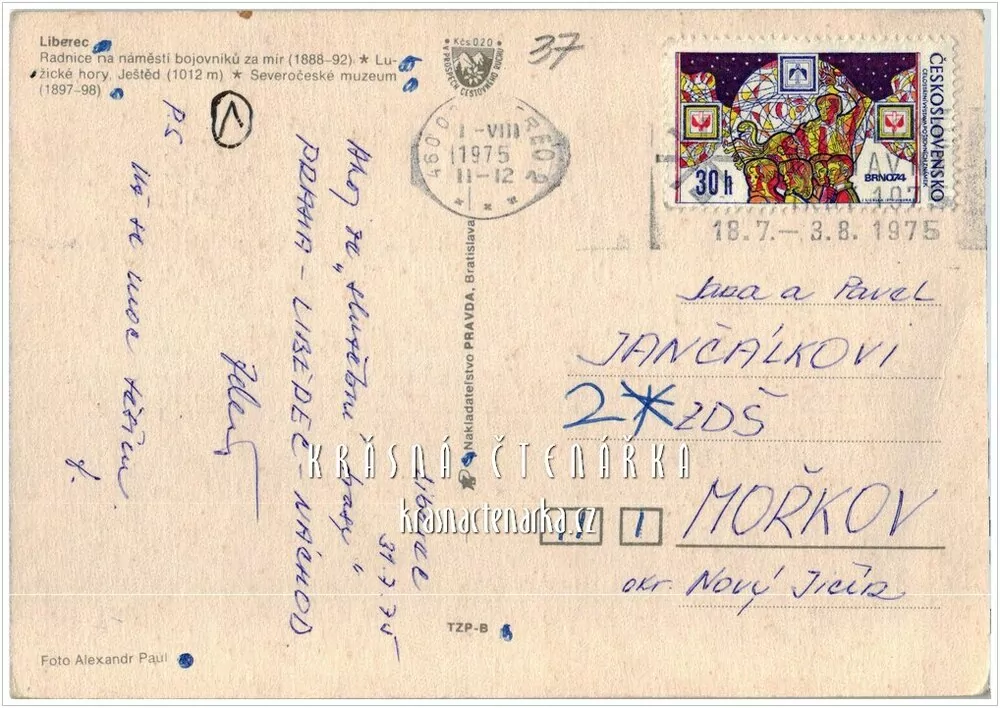 Liberec
Radnice na náměstí bojovníků za mír (1888–92). ★ Lu-
žické hory, Ještěd (1012 m) ★ Severočeské muzeum
(1897–98)
Kčs 0,20
V PROSPĚCH CESTOVNÉHO RUCHU
37
460 0
1 -VIII
1975
11-12
ČESKOSLOVENSKO
CELOSTÁTNÍ VÝSTAVA POŠTOVNÍCH ZNÁMEK
BRNO74
30 h
18.7.– 3.8. 1975
Liberec
31.7.75
Ahoj ze „služební trasy“
PRAHA – LIBEREC – NÁCHOD
P.S
Už se moc těším
Nakladatelstvo PRAVDA, Bratislava
Jana a Pavel
JANČÁLKOVI
2* ZDŠ
MOŘKOV
okr. Nový Jičín
KRÁSNÁ ČTENÁŘKA
krasnactenarka.cz
TZP-B
Foto Alexandr Paul